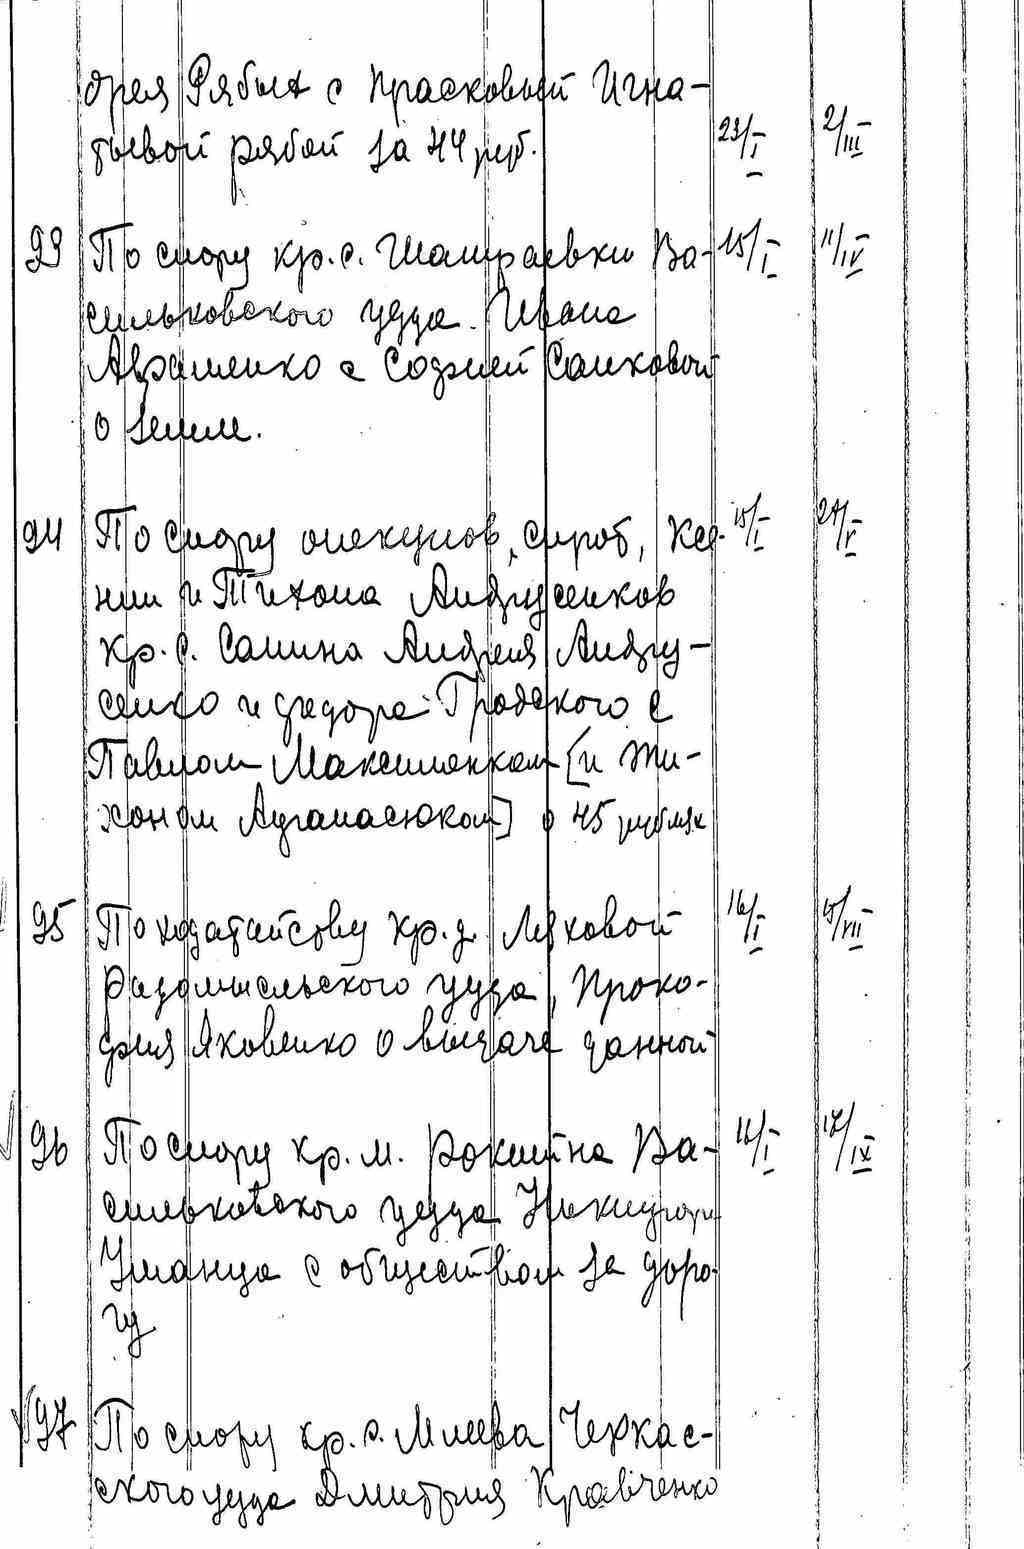 дрея Рябых с Прасковьей Игна-
тьевой рябой за 44 руб. 23/I 2/III
93 По спору кр. с. Шамраевки Ва- 15/I 11/IV
сильковского уезда Ивана
Авраменко с Софией Саиковой
о земле.
94 По спору опекунов, сирот, Ксе- 15/I 24/V
нии и Тихона Андрусенков
кр. с. Сашна Андрея Андру-
сенко и Федора Гродского с
Павлом Максименком [и Ти-
хоном Афанасюком] о 45 рублях
95 По ходатайству кр. д. Ляховой 16/I 15/VII
Радомысльского уезда, Проко-
фия Яковенко о выдаче данной
96 По спору кр. м. Рокитна Ва- 16/I 17/IX
сильковского уезда Никифора
Уманца с обществом за доро-
гу
97 По спору кр. с. Млиева Черкас-
ского уезда Дмитрия Кравченко